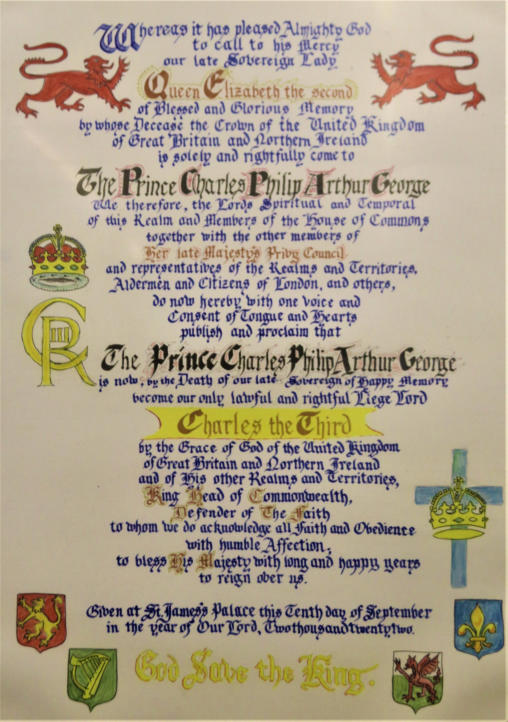 Whereas it has pleased Almighty God
to call to his Mercy
our late Sovereign Lady
Queen Elizabeth the second
of Blessed and Glorious Memory
by whose Decease the Crown of the United Kingdom
of Great Britain and Northern Ireland
is solely and rightfully come to
The Prince Charles Philip Arthur George
We therefore, the Lords Spiritual and Temporal
of this Realm and Members of the House of Commons
together with the other members of
Her late Majesty's Privy Council
and representatives of the Realms and Territories,
Aldermen and Citizens of London, and others,
do now hereby with one voice and
Consent of Tongue and Hearts
publish and proclaim that
CRIII
The Prince Charles Philip Arthur George
is now, by the Death of our late Sovereign of Happy Memory
become our only lawful and rightful Liege Lord
Charles the Third
by the Grace of God of the United Kingdom
of Great Britain and Northern Ireland
and of His other Realms and Territories,
King Head of Commonwealth,
Defender of The Faith
to whom we do acknowledge all Faith and Obedience
with humble Affection;
to bless His Majesty with long and happy years
to reign over us.
Given at St. James's Palace this Tenth day of September
in the year of Our Lord, Twothousandtwentytwo.
God Save the King.